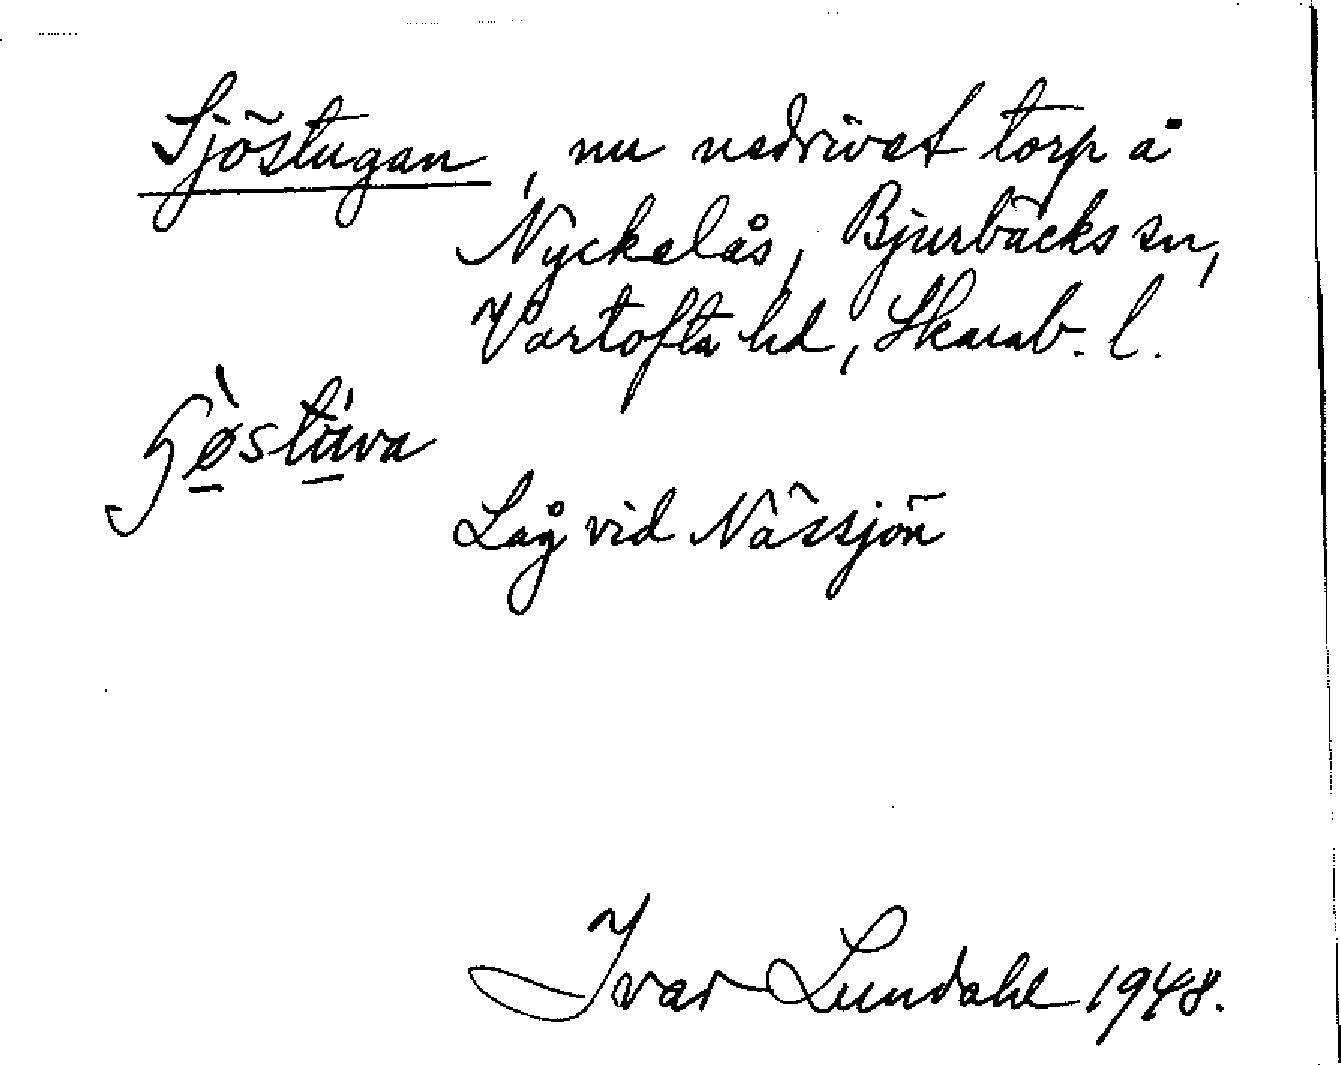 Sjöstugan, nu nedrivet torp å
Nyckelås, Bjurbäcks sn,
Vartofta hd, Skarab. l.
Låg vid Nässjön
Ivar Lundahl 1948.